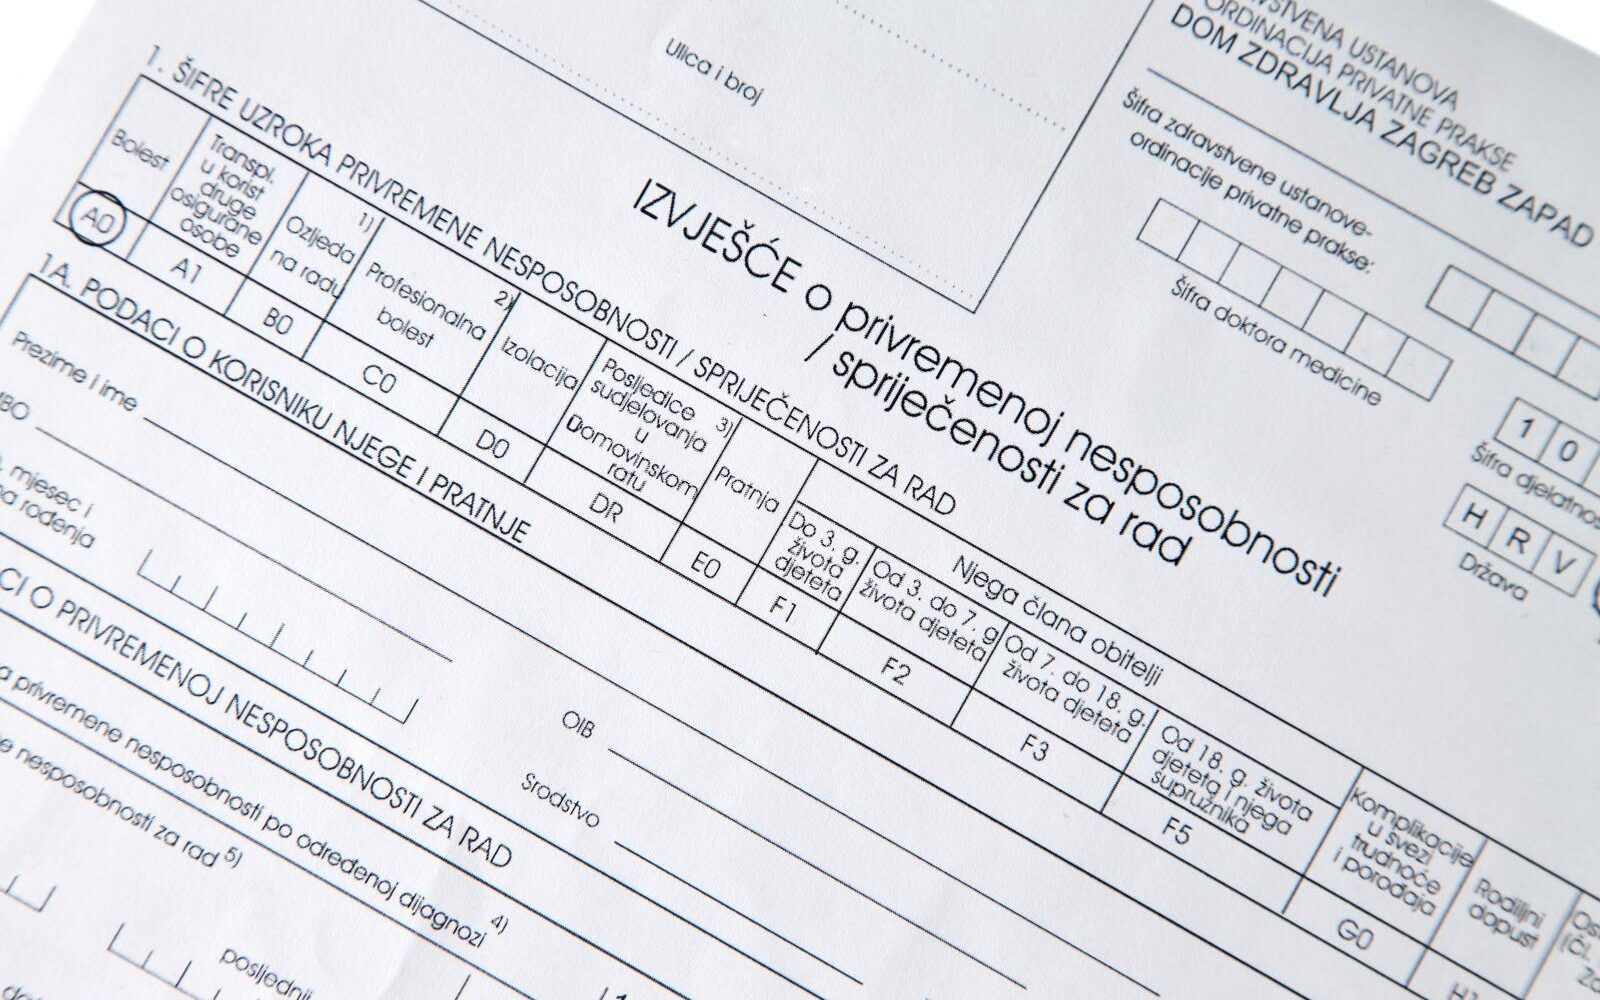 Ulica i broj
STVENA USTANOVA
ORDINACIJA PRIVATNE PRAKSE
DOM ZDRAVLJA ZAGREB ZAPAD
Šifra zdravstvene ustanove-
ordinacije privatne prakse:
Šifra doktora medicine
1 0
Šifra djelatnos
H R V
Država
IZVJEŠĆE o privremenoj nesposobnosti
/ spriječenosti za rad
1. ŠIFRE UZROKA PRIVREMENE NESPOSOBNOSTI / SPRIJEČENOSTI ZA RAD
Bolest
Transpl.
u korist
druge
osigurane
osobe
1)
Ozljeda
na radu
2)
Profesionalna
bolest
Izolacija
3)
Posljedice
sudjelovanja
u
Domovinskom
ratu
Pratnja
Njega člana obitelji
Do 3. g.
života
djeteta
Od 3. do 7. g
života djeteta
Od 7. do 18. g.
života djeteta
Od 18. g. života
djeteta i njega
supružnika
Komplikacije
u svezi
trudnoće
i porođaja
Rodiljni
dopust
A0 A1 B0 C0 D0 DR E0 F1 F2 F3 F5 G0
1A. PODACI O KORISNIKU NJEGE I PRATNJE
Prezime i ime
MBO
mjesec i
na rođenja
OIB
Srodstvo
CI O PRIVREMENOJ NESPOSOBNOSTI ZA RAD
a privremene nesposobnosti po određenoj dijagnozi 4)
e nesposobnosti za rad 5)
posljednji